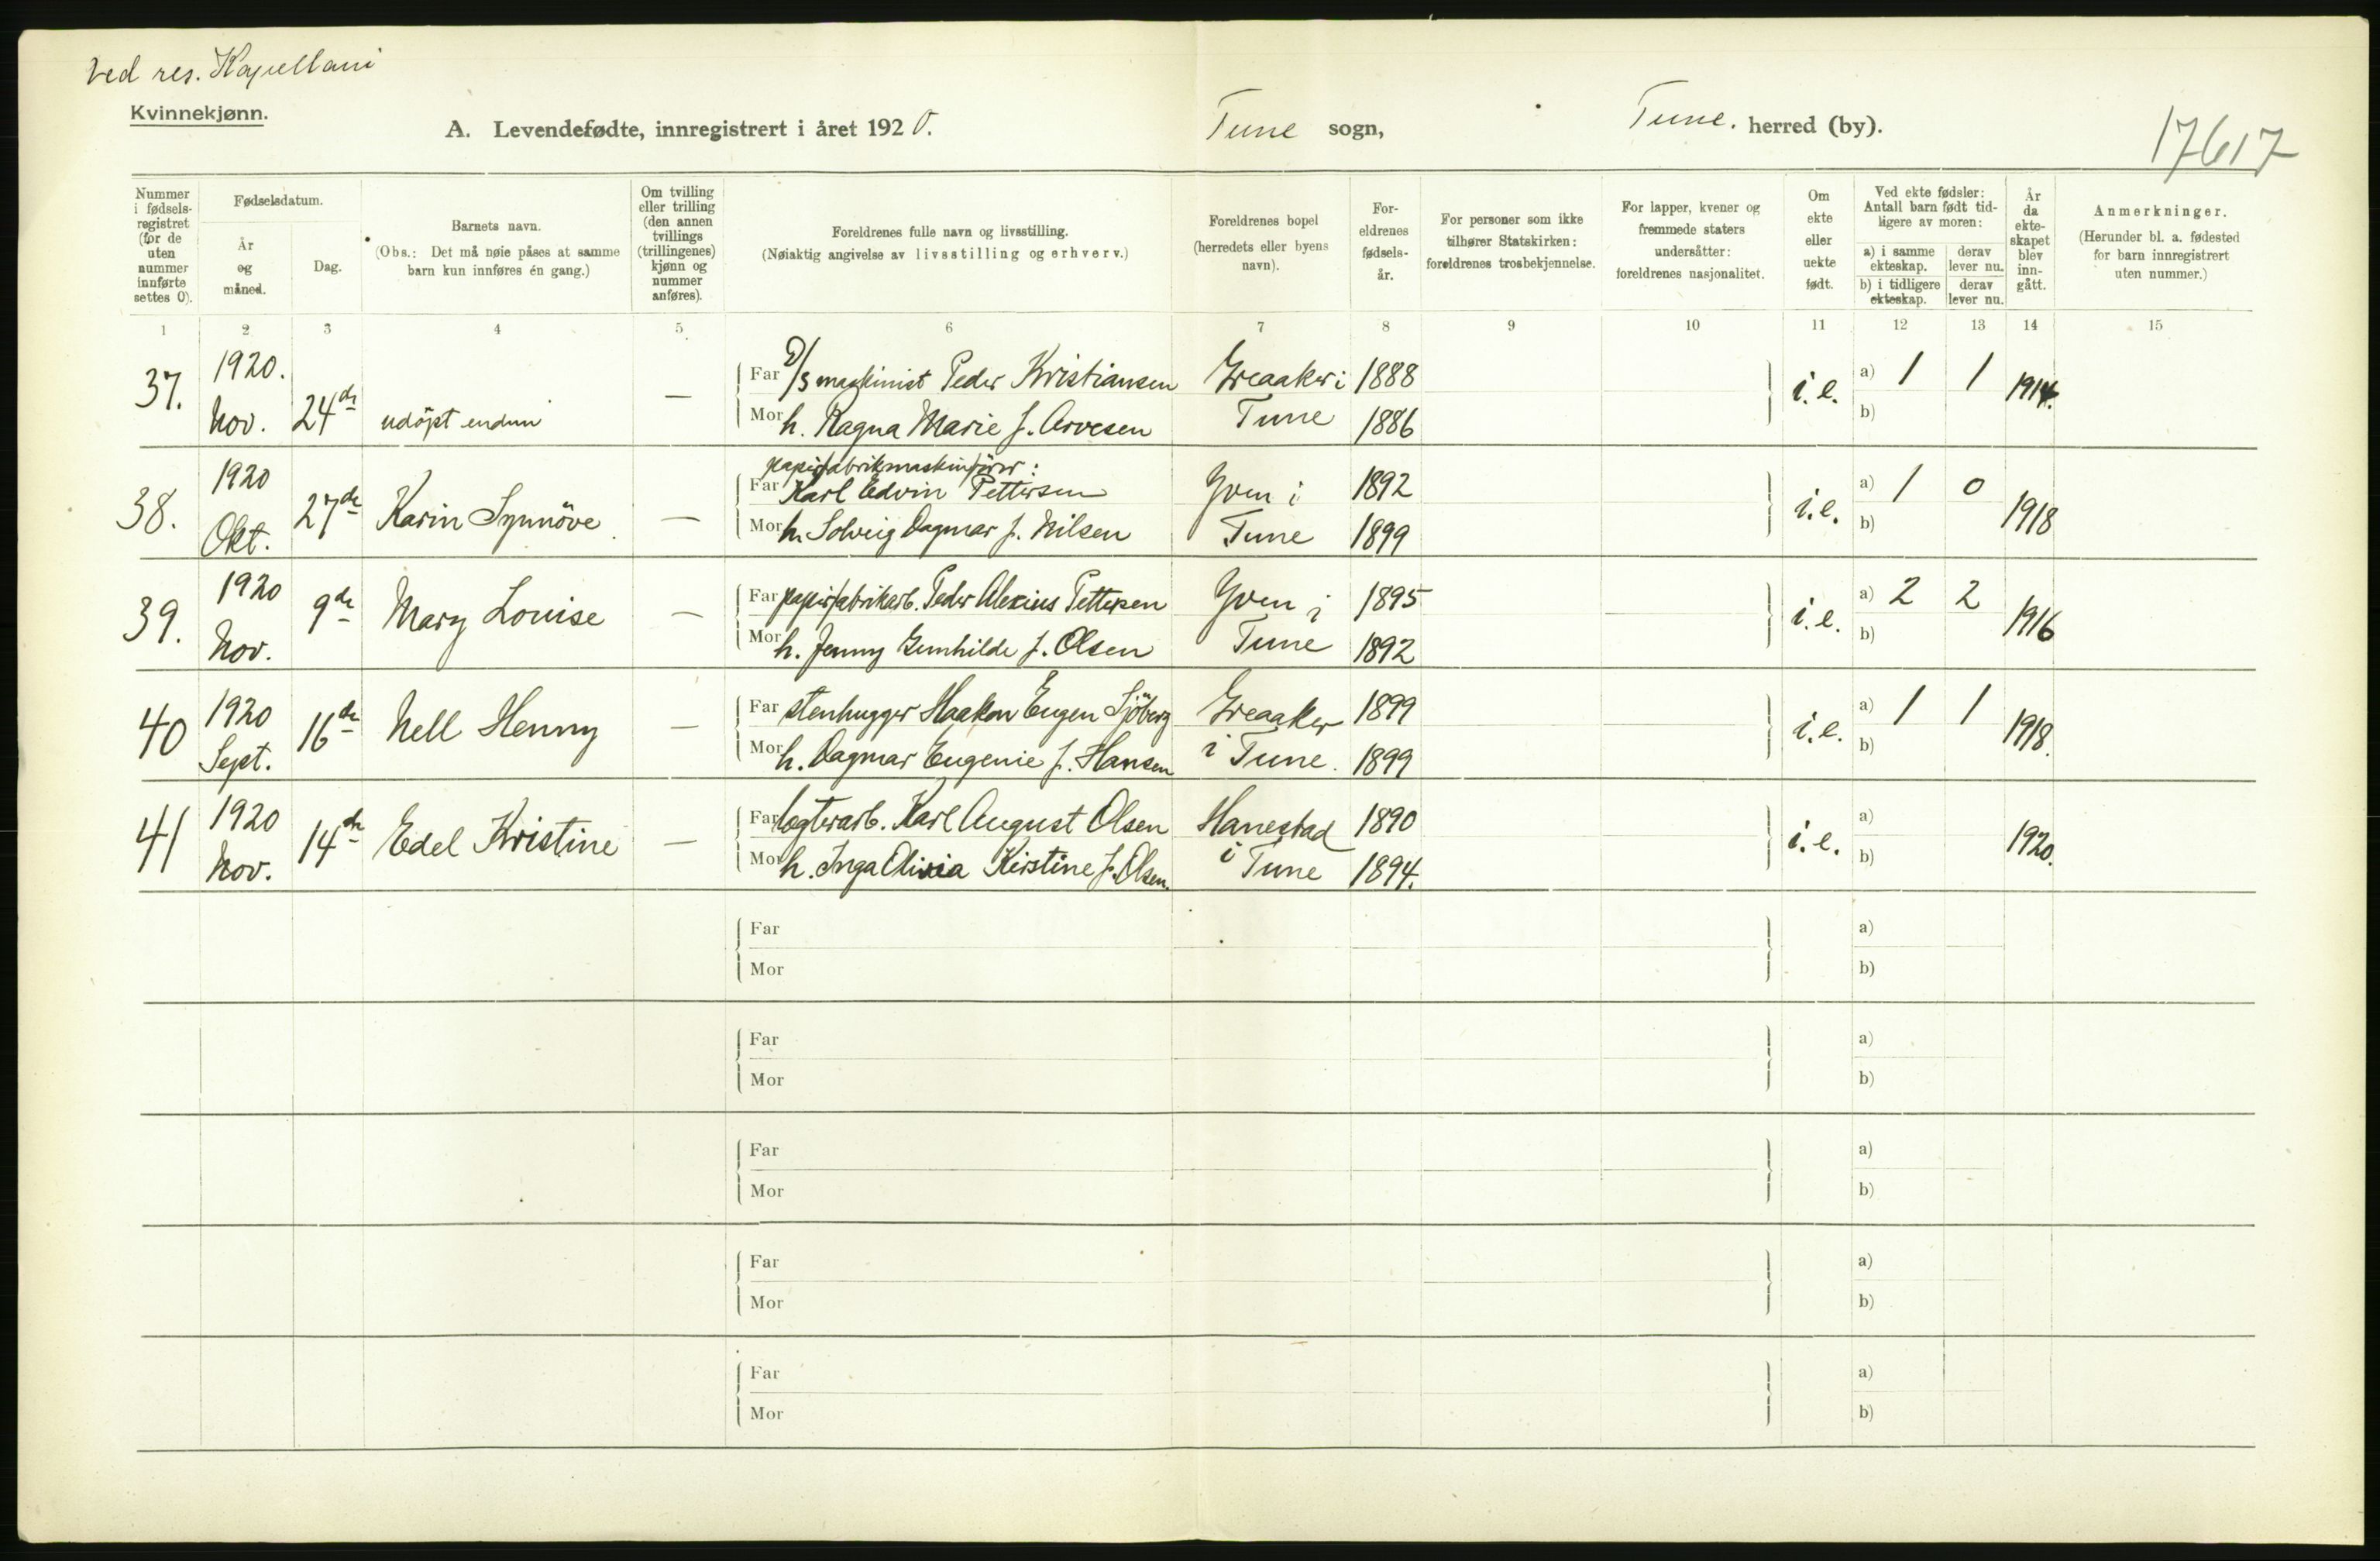 Ved res. Kapellani
Kvinnekjønn.
A. Levendefødte, innregistrert i året 1920.
Tune sogn,
Tune. herred (by).
17617
Nummer i fødsels-registret (for de uten nummer innførte settes 0).
Fødselsdatum.
År og måned.
Dag.
Barnets navn.
(Obs.: Det må nøie påses at samme barn kun innføres én gang.)
Om tvilling eller trilling (den annen tvillings (trillingenes) kjønn og nummer anføres).
Foreldrenes fulle navn og livsstilling.
(Nøiaktig angivelse av livsstilling og erhverv.)
Foreldrenes bopel (herredets eller byens navn).
For-eldrenes fødsels-år.
For personer som ikke tilhører Statskirken: foreldrenes trosbekjennelse.
For lapper, kvener og fremmede staters undersåtter: foreldrenes nasjonalitet.
Om ekte eller uekte født.
Ved ekte fødsler: Antall barn født tid-ligere av moren:
a) i samme ekteskap.
derav lever nu.
b) i tidligere ekteskap.
derav lever nu.
År da ekte-skapet blev inn-gått.
Anmerkninger.
(Herunder bl. a. fødested for barn innregistrert uten nummer.)
1 2 3 4 5 6 7 8 9 10 11 12 13 14 15
37. 1920. Nov. 24de udöpt endnu —
Far D/s maskinist Peder Kristiansen Greaaker i 1888
Mor h. Ragna Marie f. Arvesen Tune 1886
i.e. a) 1 1 b) 1914.
38. 1920 Okt. 27de Karin Synnöve —
papirfabrikmaskinförer:
Far Karl Edvin Pettersen Yven i 1892
Mor h. Solveig Dagmar f. Nilsen Tune 1899
i.e. a) 1 0 b) 1918
39. 1920 Nov. 9de Mary Louise —
Far papirfabrikarb. Peder Alexius Pettersen Yven i 1895
Mor h. Jenny Gunhilde f. Olsen Tune 1892
i.e. a) 2 2 b) 1916
40 1920 Sept. 16de Nell Henny —
Far stenhugger Haakon Eugen Sjöberg Greaaker 1899
Mor h. Dagmar Eugenie f. Hansen i Tune. 1899
i.e. a) 1 1 b) 1918.
41 1920 Nov. 14de Edel Kristine —
Far Karl August Olsen Hanestad 1890
Mor h. Inga Olivia Kirstine f. Olsen. i Tune 1894.
i.e. a) b) 1920.
Far a)
Mor b)
Far a)
Mor b)
Far a)
Mor b)
Far a)
Mor b)
Far a)
Mor b)